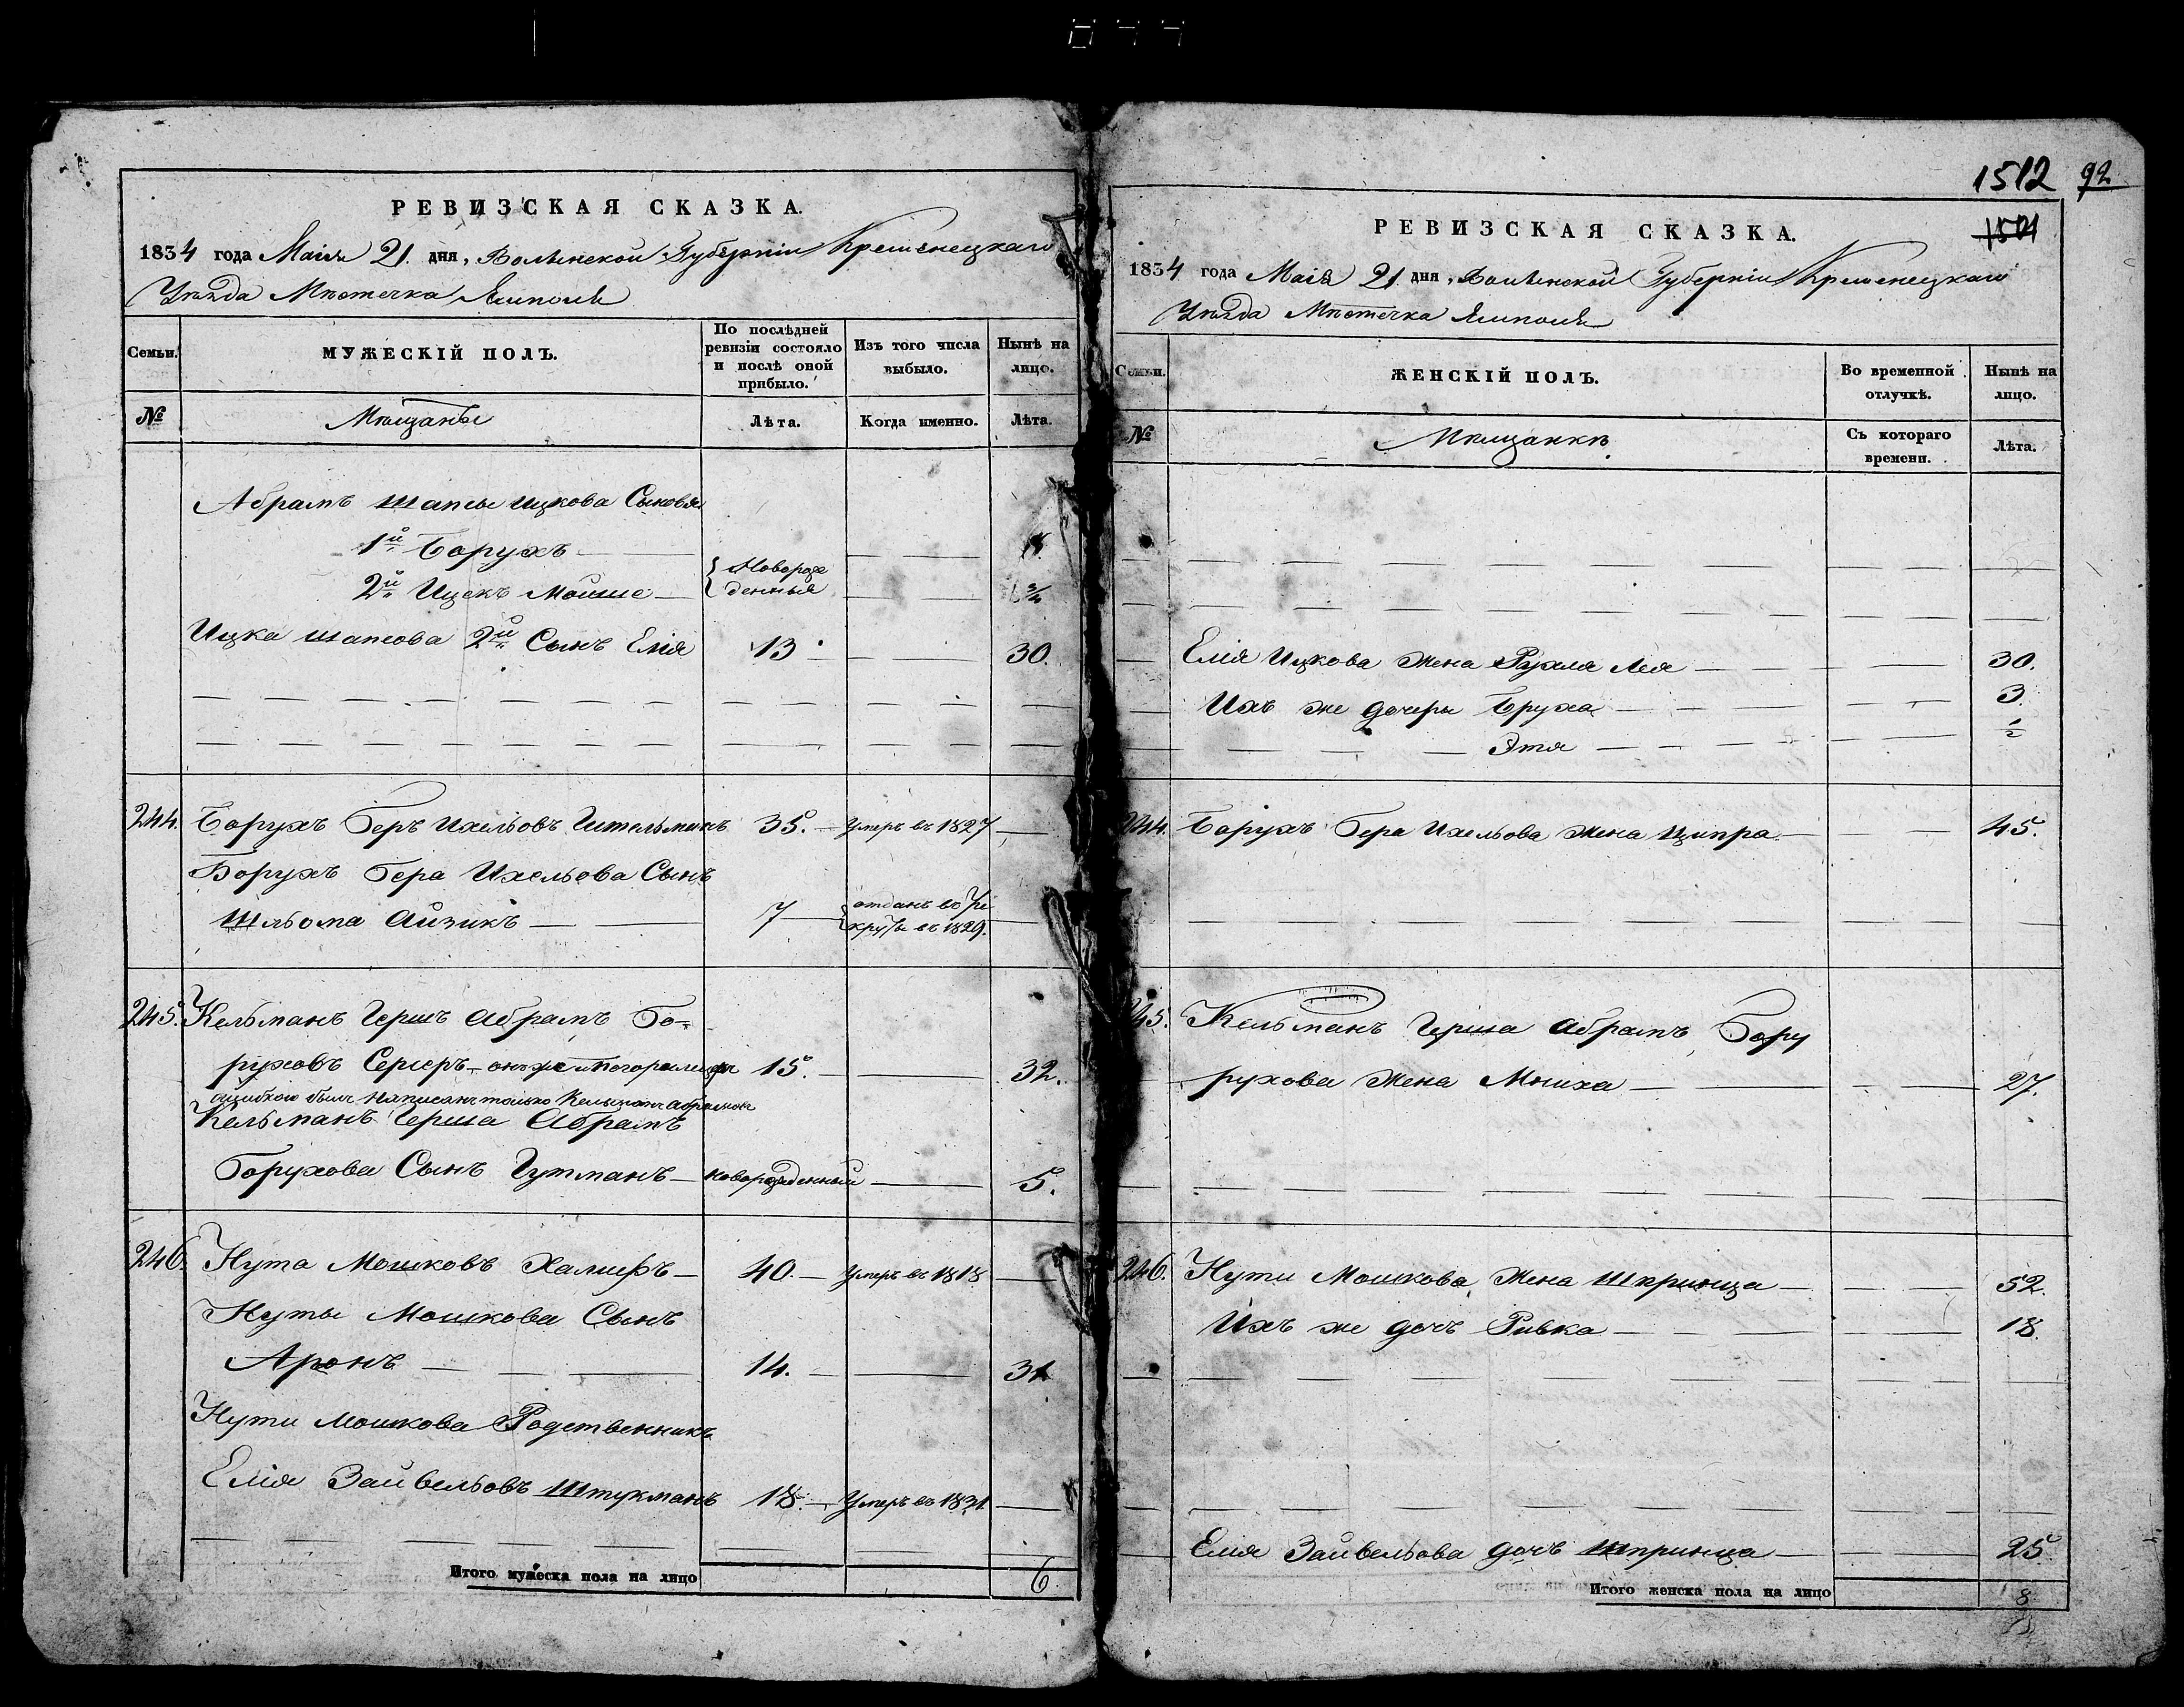 РЕВИЗСКАЯ СКАЗКА.
1834 года Маія 21. дня, Волынской Губерніи Кременецкаго
Уѣзда Мѣстечка Ямполя
Семьи.
МУЖЕСКІЙ ПОЛЪ.
По послѣдней ревизіи состояло и послѣ оной прибыло.
Изъ того числа выбыло.
Нынѣ на лицо.
№
Мѣщанѣ
Лѣта.
Когда именно.
Лѣта.
Абрамъ Шапсы Ицкова Сыновья
1й Борухъ
2й Ицекъ Мойше
Новорож
денныя
3/4
Ицка Шапсова 2й Сынъ Елія 13 30.
244. Борухъ Беръ Ихельовъ 35. Умеръ въ 1827
Борухъ Бера Ихельова Сынъ
Шльома Айзикъ 7 отданъ во ре
круты въ 1829.
245. Кельманъ Гершъ Абрамъ Бо-
руховъ 15. 32.
ошибкою былъ написанъ только Кельманъ
Кельманъ Герша Абрамъ
Борухова Сынъ Гутманъ новорожденный 5.
246. Нута Мошковъ 40. Умеръ въ 1818
Нуты Мошкова Сынъ
Аронъ 14. 31
Нути Мошкова Родственникъ
Елія Зайвельовъ Штукманъ 18. Умеръ въ 1831.
Итого мужеска пола на лицо 6
1512 92
1501
РЕВИЗСКАЯ СКАЗКА.
1834 года Маія 21. дня, Волынской Губерніи Кременецкаго
Уѣзда Мѣстечка Ямполя
Семьи.
ЖЕНСКІЙ ПОЛЪ.
Во временной отлучкѣ.
Нынѣ на лицо.
№
Мѣщанкѣ
Съ котораго времени.
Лѣта.
Елія Ицкова Жена Рухля Лея 30.
Ихъ же дочери Бруха 3.
Этя 1/2
244. Борухъ Бера Ихельова жена Ципра 45.
245. Кельманъ Герша Абрамъ Бору
рухова Жена Мниха 27.
246. Нути Мошкова Жена Шпринца 52.
Ихъ же дочъ Ривка 18.
Елія Зайвельова дочъ Шпринца 25
Итого женска пола на лицо 8